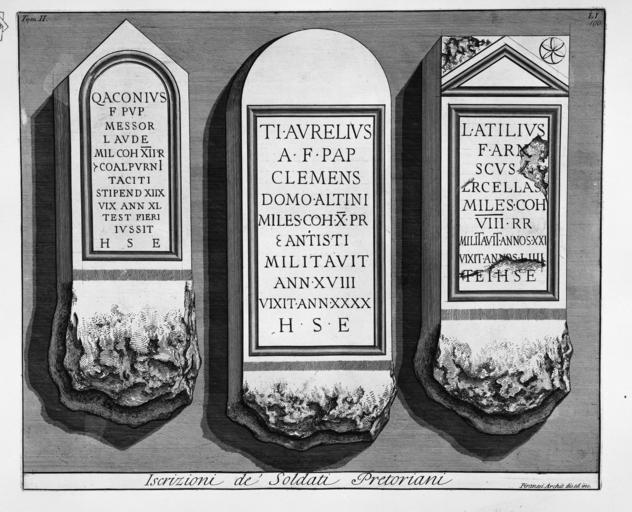 Tom. II.
LI
Q ACONIVS
F PVP
MESSOR
LAVDE
MIL COH XII P R
COALPVRNI
TACITI
STIPEND XIIX
VIX ANN XL
TEST FIERI
IVSSIT
H S E
TI·AVRELIVS
A·F·PAP
CLEMENS
DOMO·ALTINI
MILES·COH·X·PR
ANTISTI
MILITAVIT
ANN·XVIII
VIXIT·ANN·XXXX
H·S·E
L·ATILIVS
F·ARN
SCVS
MILES·COH
VIII·RR
MILITAVIT·ANNOS·XXI
VIXIT·ANNOS·LIIII
TEIHSE
Iscrizioni de' Soldati Pretoriani
Piranesi Archit. dis. ed inc.